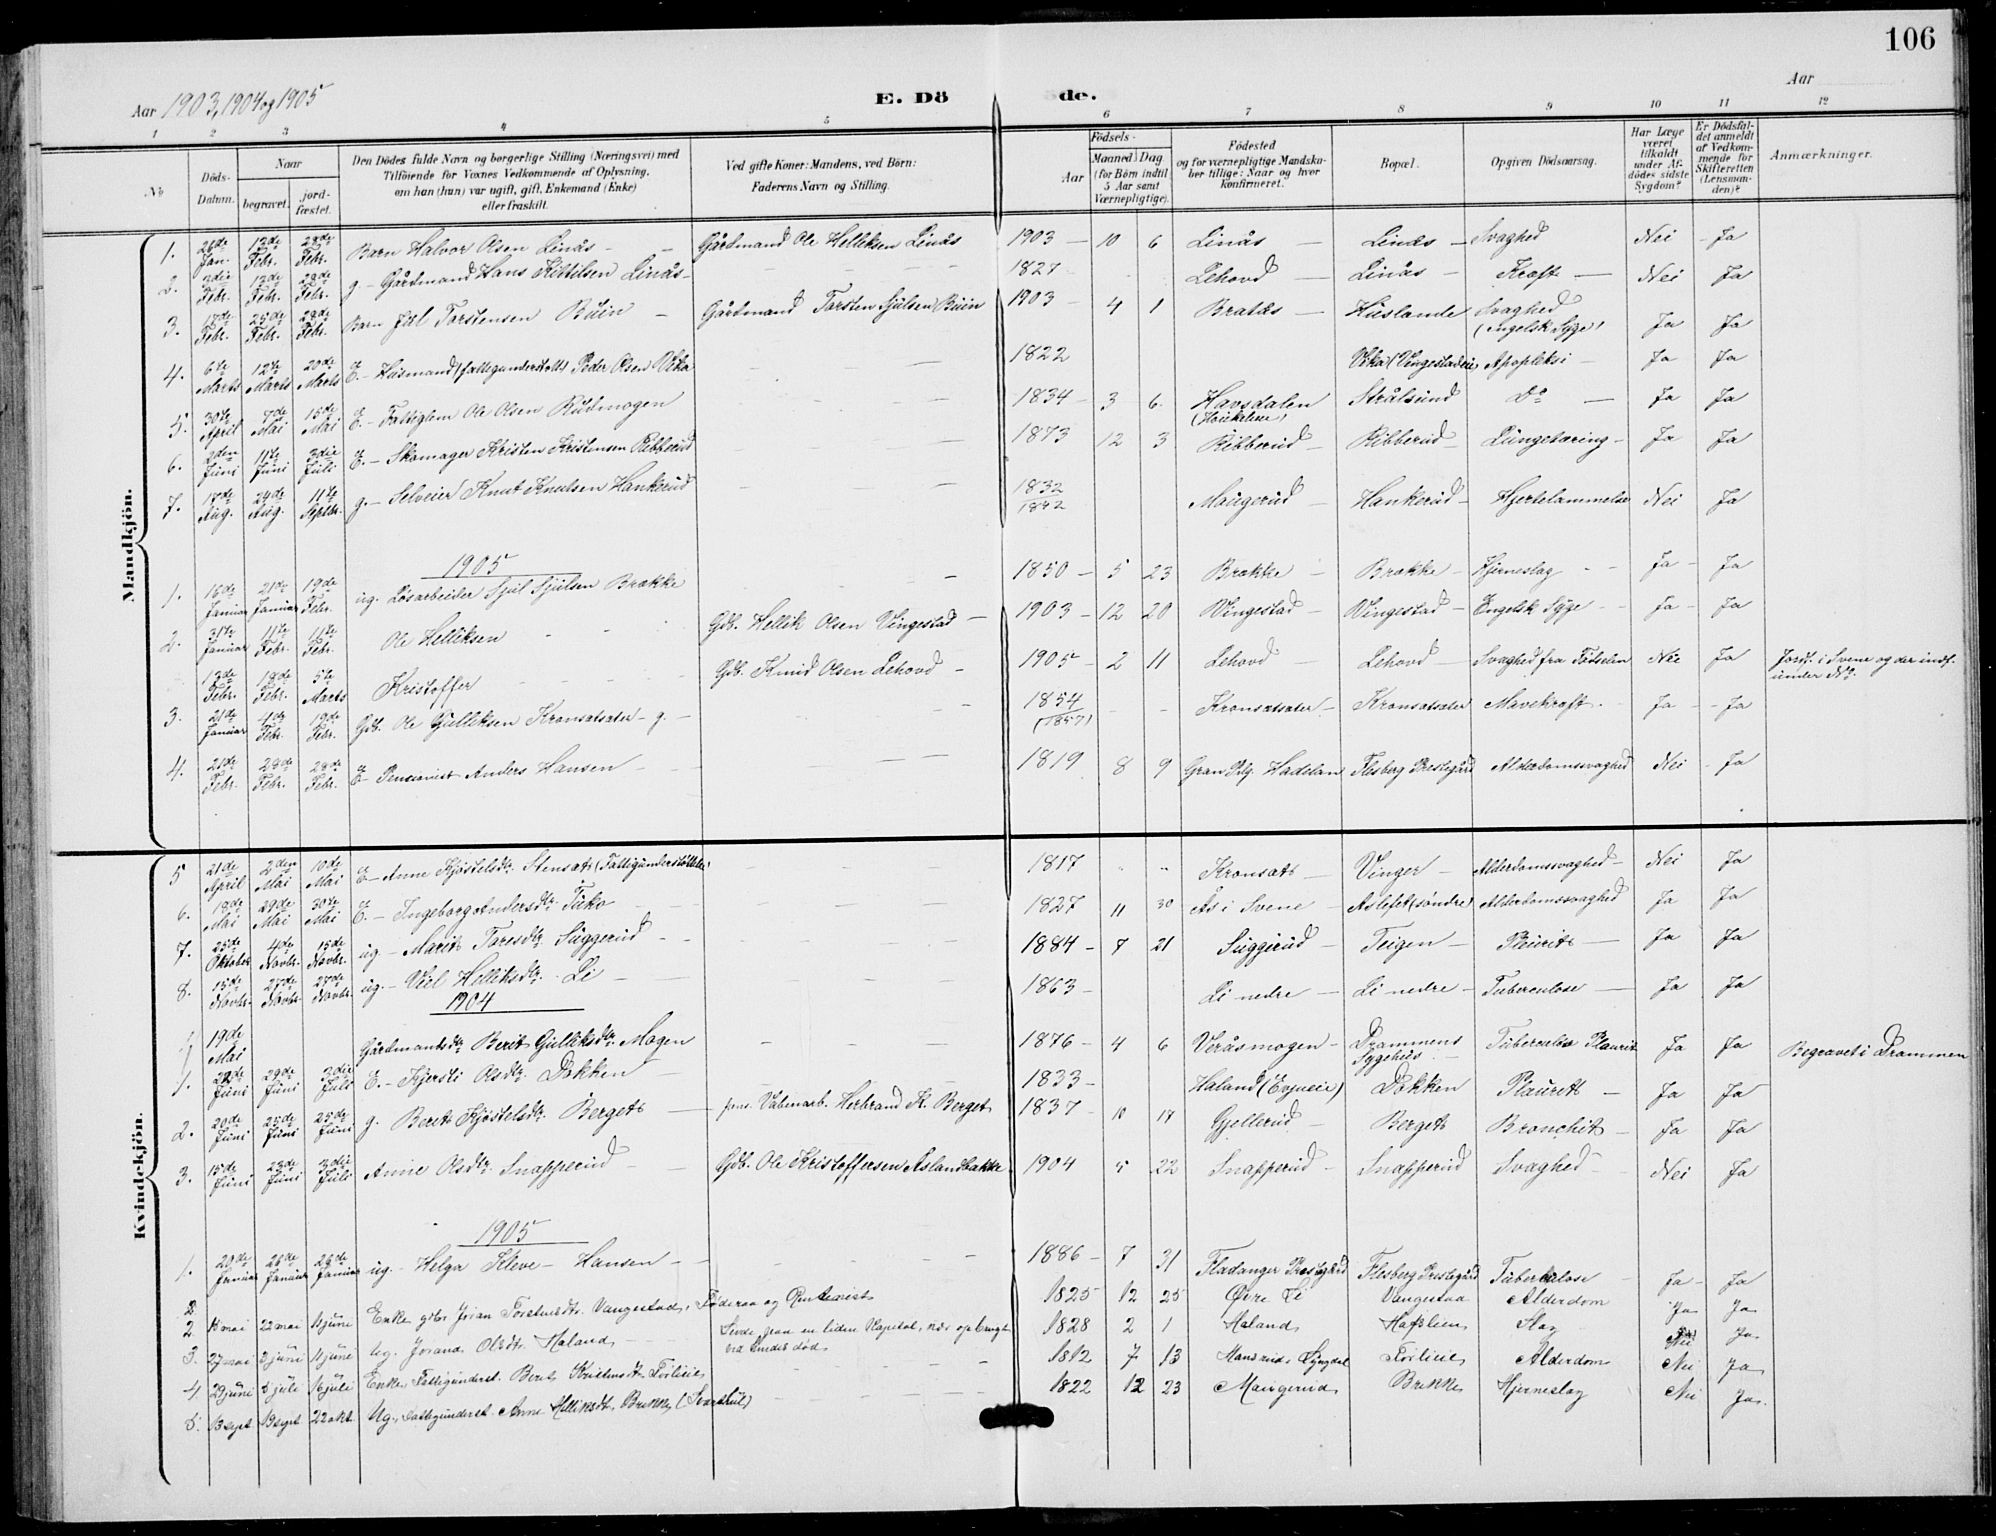 106
Aar 1903, 1904 og 1905
E. Dö
de.
Aar
1 2 3 4 5 6 7 8 9 10 11 12
No
Döds-Datum.
Naar
begravet.
jord-fæstet.
Den Dödes fulde Navn og borgerlige Stilling (Næringsvei) med
Tilföiende for Voxnes Vedkommende af Oplysning,
om han (hun) var ugift, gift, Enkemand (Enke)
eller fraskilt.
Ved gifte Koner: Mandens, ved Börn:
Faderens Navn og Stilling.
Födsels-
Aar
Maaned Dag
(for Börn indtil
5 Aar samt
Værnepligtige).
Födested
og for værnepligtige Mandska-
ber tillige: Naar og hvor
konfirmeret.
Bopæl.
Opgiven Dödsaarsag.
Har Læge
været
tilkaldt
under Af-
dödes sidste
Sygdom?
Er Dödsfal-
det anmeldt
af Vedkom-
mende for
Skifteretten
(Lensman-
den)?
Anmærkninger.
Mandkjön.
1. 26de Jan. 13de Febr. 28de Febr. Barn Halvor Olsen Linås – Gårdmand Ole Helliksen Linås 1903 – 10 6 Linås – Linås – Svaghed Nei – Ja
2. 3die Febr. 13de Febr. 28de Febr. g – Gårdmand Hans Kittilsen Linås – 1827 Lehovd – Linås – Kræft – Nei Ja
3. 17de Febr. 25de Febr. 28de Febr. Barn Torstensen Buin – Gårdmand Torsten Sjulsen Buin 1903 – 4 1 Bratås – Huslande Svaghed (engelsk Syge) Ja Ja
4. 6te Marts 12te Marts 20de Marts E. – Husmand (fattigunderstøttet) Peder Olsen Vika 1822 Vika (Vingestadeie) Apopleksi – Ja Ja
5. 30te April 7de Mai 15de Mai E. – Fattiglem Ole Olsen Rudmogen 1834 – 3 6 Havsdalen Strålsund Do – Ja Ja
6. 2den Juni 11te Juni 3die Juli E. – Skomager Kristen Kristensen Ribberud 1873 12 3 Ribberud – Ribberud – Lungetæring – Ja Ja
7. 17de Aug. 24de Aug. 11te Septbr. g. – Selveier Knut Knutsen Hankerud 1832 1842 Maugerud – Hankerud – Hjertelammelse Nei Ja
1905
1. 16de Januar 21de Januar 19de Febr. ug. Løsarbeider Sjul Sjulsen Brække – 1850 – 5 23 Brække – Brække – Hjerneslag – – Ja – Ja
2. 31te Januar 11te Febr. 11te Febr. Ole Helliksen – – Gdb. Hellik Olsen Vingestad – 1903 – 12 20 Vingestad – Vingestad – Engelsk Syge – – Ja – Ja
13de Febr. 18de Febr. 5te Marts Kristoffer – – Gdb. Knud Olsen Lehovd – 1905 – 2 11 Lehovd – Lehovd – Svaghed fra Fødselen Nei Ja Jordf. i Svene og der indf. under No.
3. 21de Januar 4de Febr. 19de Febr. Gdb. Ole Gulliksen Kronsatsater – g. – 1854 (1857) – – Kronsatsater – Kronsatsater Mavekræft – Ja – – Ja
4. 21de Febr. 28de Febr. 28de Febr. E – Pensionist Anders Hansen – 1819 8 9 Gran Prg. Hadeland Flesberg Prestegård Alderdomssvaghed Nei – Ja
Kvindekjön.
5 21de April 2den Mai 10de Mai E – Anne Kjøstelsdtr. Stensats (Fattigunderstøttelse) 1817 " " Kronsats – Vinger – Alderdomssvaghed – Nei Ja
6. 18de Mai 29de Mai 30te Mai E. – Ingeborg Andersdtr. Tuko – 1827 11 30 Ås i Svene – Aslefet (søndre) Alderdomssvaghed Ja Ja
7. 25de Oktober 4de Novbr. 15de Novbr. ug – Marit Toresdtr. Suggerud – – 1884 – 7 21 Suggerud – Teigen – Pleurit – Ja Ja
8. 15de Novbr. 27de Novbr. 27de Novbr. ug. – Helliksdtr. Li – 1863 – Li nedre – Li nedre – Tuberculose – Ja Ja
1904
19de Mai Gårdmandsdtr. Berit Gulliksdtr. Mogen – 1876 – 4 6 Veråsmogen – Drammens Sygehus – Tuberculøs Pleurit Ja Ja Begravet i Drammen
1. Juni 29de Juni 3die Juli E. – Kjersti Olsdtr. Dokken – 1833 – Haland (Evjueie) Dokken Pleurit – Ja Ja
2. 20de Juni 25de Juni 25de Juni g. Berit Kjøstelsdtr. Berget – pens. Våbenarb. Herbrand K. Berget 1837 – 10 17 Gjellerud – Berget Bronchit – Ja Ja
3. 15de Juni 23de Juni 3die Juli Anne Olsdtr. Snapperud – Gdb. Ole Kristoffersen Aslandbakke 1904 5 22 Snapperud – Snapperud Svaghed – Nei Ja
1905
1. 20de Januar 26de Januar 26de Januar ug. – Helga Kleve – Hansen – – 1886 – 7 31 Fladanger Prestegård Flesberg Prestegård Tuberkulose – Ja – Ja
2 mai 22 mai 11 juni Enke Joran Torstensdtr. Vangestad, Føderaa og Rentenist 1825 12 25 Øvre Li Vangestad Alderdom Ja Ja
3. 27 mai 3 juni 11 juni Ug. Jorand Olsdtr. Haland, – Levde paa en liden Kapital, nær opbrugt ved hendes død 1828 2 1 Haland, Hafslien Slag Nei Ja
4 29 juni 8 juli 16 juli Enke, Fattigunderst. Berit Foslieie – 1812 7 13 Lyngdal Foslieie Alderdom Nei Ja
5. 13 sept 19 sept 22 okt. Ug., Fattigunderst. Anne Helliksdt. Brekke, (Svarthul) – 1822 12 23 Maugerud, Brekke, Hjerneslag Nei Ja.